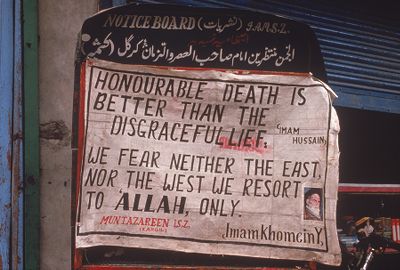 NOTICE BOARD (نشریات) J.A.M.S.Z.
انجمن منتظرین امام صاحب العصر والزمان کرگل (کشمیر)
HONOURABLE DEATH IS
BETTER THAN THE
DISGRACEFUL LIEF.
IMAM
HUSSAIN
WE FEAR NEITHER THE EAST,
NOR THE WEST WE RESORT
TO ALLAH, ONLY.
MUNTAZAREEN I.S.Z.
(KARGIL)
Imam Khomeiny.